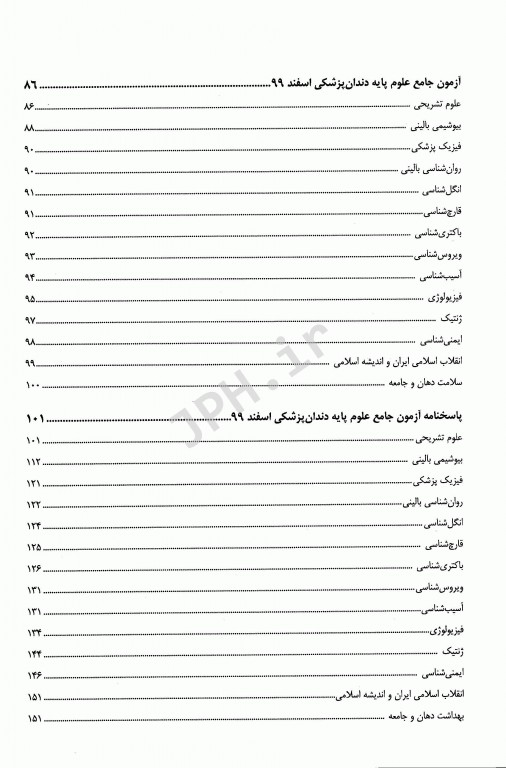 آزمون جامع علوم پایه دندان‌پزشکی اسفند ۹۹ ........ ۸۶
علوم تشریحی ........ ۸۶
بیوشیمی بالینی ........ ۸۸
فیزیک پزشکی ........ ۹۰
روان‌شناسی بالینی ........ ۹۰
انگل‌شناسی ........ ۹۱
قارچ‌شناسی ........ ۹۱
باکتری‌شناسی ........ ۹۲
ویروس‌شناسی ........ ۹۳
آسیب‌شناسی ........ ۹۴
فیزیولوژی ........ ۹۵
ژنتیک ........ ۹۷
ایمنی‌شناسی ........ ۹۸
انقلاب اسلامی ایران و اندیشه اسلامی ........ ۹۹
سلامت دهان و جامعه ........ ۱۰۰
پاسخنامه آزمون جامع علوم پایه دندان‌پزشکی اسفند ۹۹ ........ ۱۰۱
علوم تشریحی ........ ۱۰۱
بیوشیمی بالینی ........ ۱۱۲
فیزیک پزشکی ........ ۱۲۱
روان‌شناسی بالینی ........ ۱۲۲
انگل‌شناسی ........ ۱۲۴
قارچ‌شناسی ........ ۱۲۵
باکتری‌شناسی ........ ۱۲۶
ویروس‌شناسی ........ ۱۳۱
آسیب‌شناسی ........ ۱۳۱
فیزیولوژی ........ ۱۳۴
ژنتیک ........ ۱۴۴
ایمنی‌شناسی ........ ۱۴۶
انقلاب اسلامی ایران و اندیشه اسلامی ........ ۱۵۱
بهداشت دهان و جامعه ........ ۱۵۱
JPH.ir